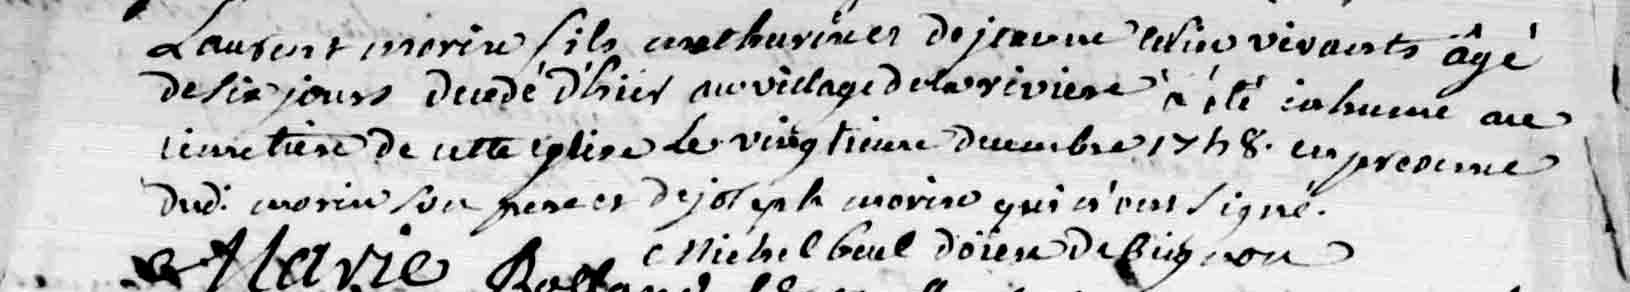 Laurent morin fils mathurin et de jeanne vivants âgé
de six jours decedé d'hier au village de la riviere a été inhumé au
cimetiere de cette eglise le vingtieme decembre 1748. en presence
dud. morin son pere et de joseph morin qui n'ont signé.
Michel beul doien de Bignon
Marie Rolland